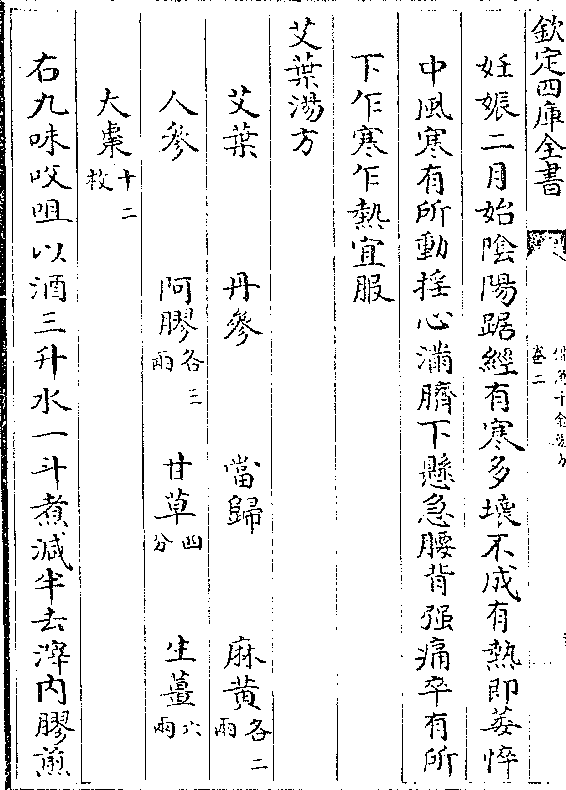 欽定四庫全書
備急千金要方
卷二
妊娠二月始陰陽踞經有寒多壞不成有熱即萎悴
中風寒有所動揺心滿臍下懸急腰背强痛卒有所
下乍寒乍熱宜服
艾葉湯方
艾葉 丹參 當歸 麻黄各二兩
人參 阿膠各三兩 甘草四分 生薑六兩
大棗十二枚
右九味㕮咀以酒三升水一斗煮減半去滓内膠煎